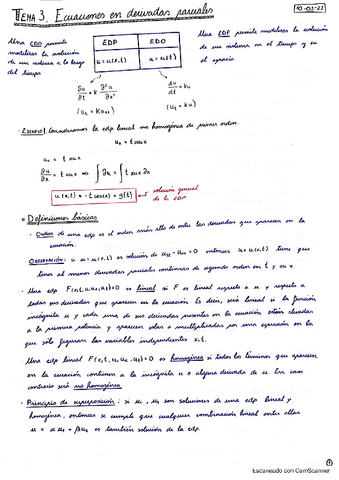 TEMA 3. Ecuaciones en derivadas parciales
10-02-22
Una EDO permite modelizar la evolución de un sistema a lo largo del tiempo
EDP
EDO
u = u(x,t)
u = u(t)
Una EDP permite modelizar la evolución de un sistema en el tiempo y en el espacio
∂u/∂t = k ∂²u/∂x²
(u_t = k u_xx)
du/dt = ku
(u_t = ku)
· Ejemplo: Consideramos la edp lineal no homogénea de primer orden
u_x = t sen x
u_x = t sen x
∂u/∂x = t sen x ⇒ ∫∂u = ∫ t sen x ∂x
u(x,t) = - t cos(x) + g(t)
→ solución general de la EDP
o Definiciones básicas
· Orden de una edp es el orden más alto de entre las derivadas que aparecen en la
ecuación.
Observación: si u = u(x,t) es solución de u_t - u_xx = 0 entonces u = u(x,t) tiene que
tener al menos derivadas parciales continuas de segundo orden en t y en x.
· Una edp F(x,t,u,u_x,u_t)=0 es lineal si F es lineal respecto a u y respecto a
todas sus derivadas que aparecen en la ecuación. Es decir, será lineal si la función
incógnita u y cada una de sus derivadas presentes en la ecuación están elevadas
a la primera potencia y aparecen solas o multiplicadas por una expresión en la
que sólo figuran las variables independientes x,t.
· Una edp lineal F(x,t,u,u_x,u_t)=0 es homogénea si todos los términos que aparecen
en la ecuación contienen a la incógnita u o alguna derivada de u. En caso
contrario será no homogénea.
· Principio de superposición: si u₁, u₂ son soluciones de una edp lineal y
homogénea, entonces se cumple que cualquier combinación lineal entre ellas
u = αu₁ + βu₂ es también solución de la edp.
1
Escaneado con CamScanner